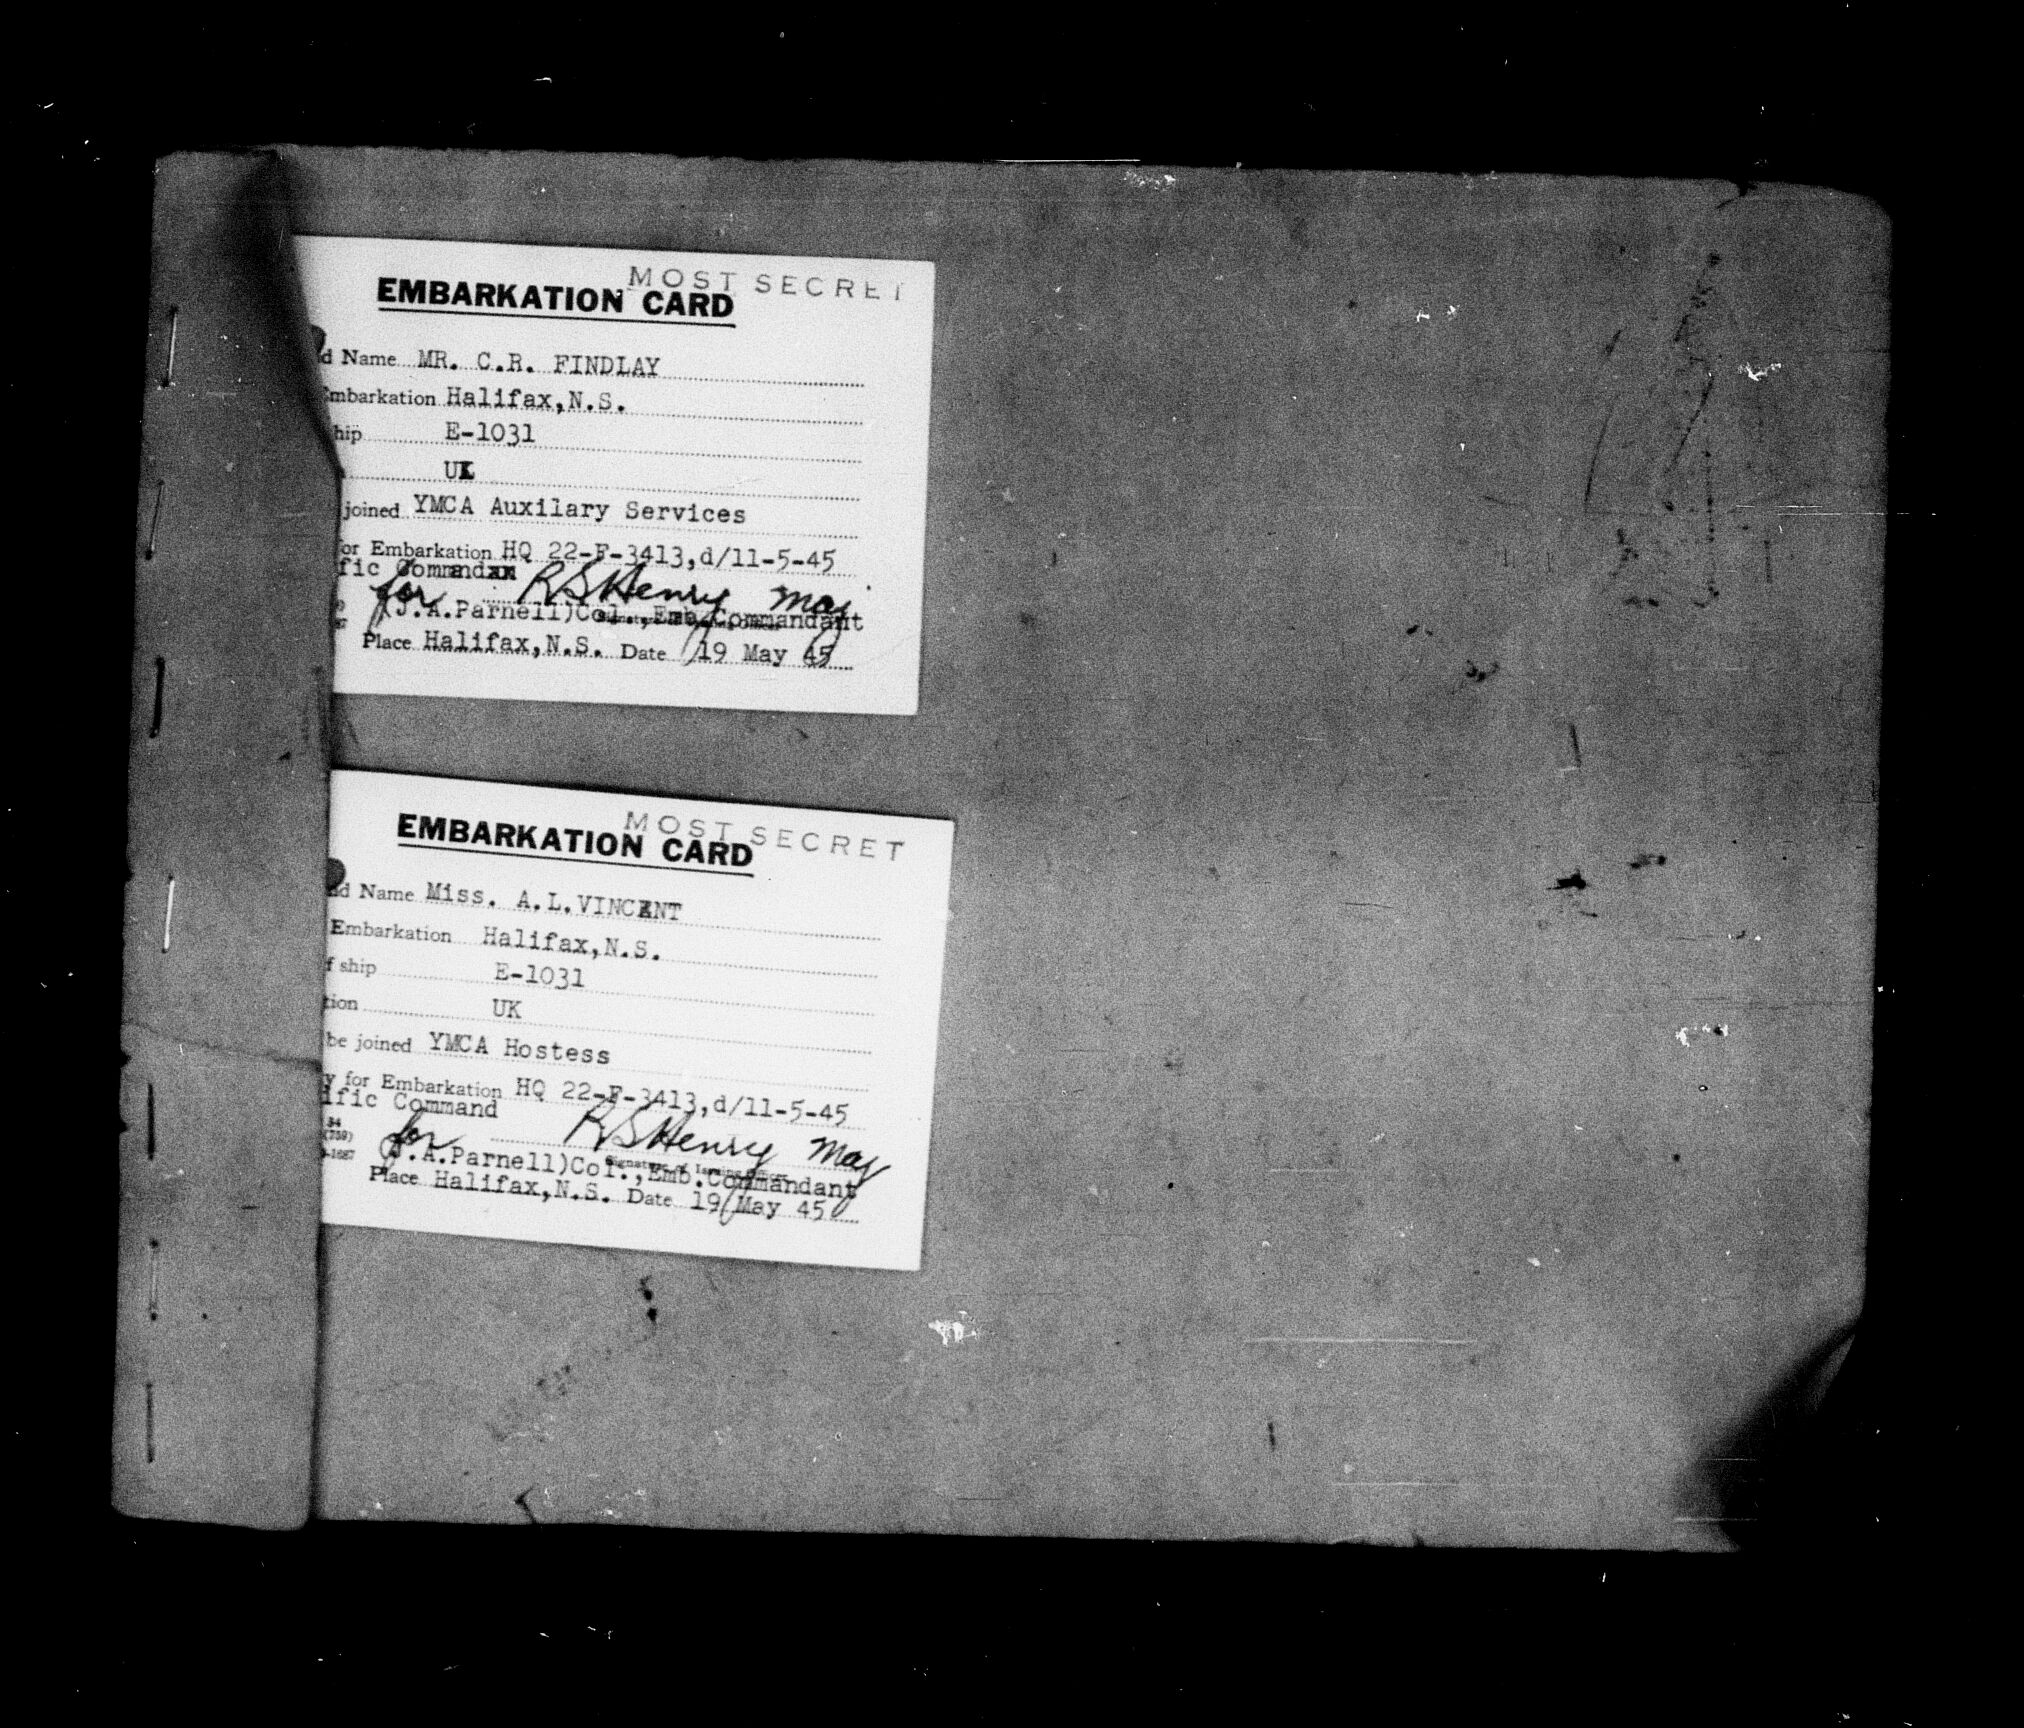 MOST SECRET
EMBARKATION CARD
d Name MR. C.R. FINDLAY
Embarkation Halifax,N.S.
hip E-1031
UK
joined YMCA Auxilary Services
for Embarkation HQ 22-F-3413,d/11-5-45
fic Command
for RSHenry Maj
(J.A.Parnell)Col.,Emb.Commandant
Place Halifax,N.S. Date 19 May 45
MOST SECRET
EMBARKATION CARD
nd Name Miss. A.L.VINCENT
Embarkation Halifax,N.S.
f ship E-1031
tion UK
be joined YMCA Hostess
y for Embarkation HQ 22-F-3413,d/11-5-45
ific Command
34
(759)
-1687
for RSHenry Maj
Signature of Issuing Officer
(J.A.Parnell)Col.,Emb.Commandant
Place Halifax,N.S. Date 19 May 45